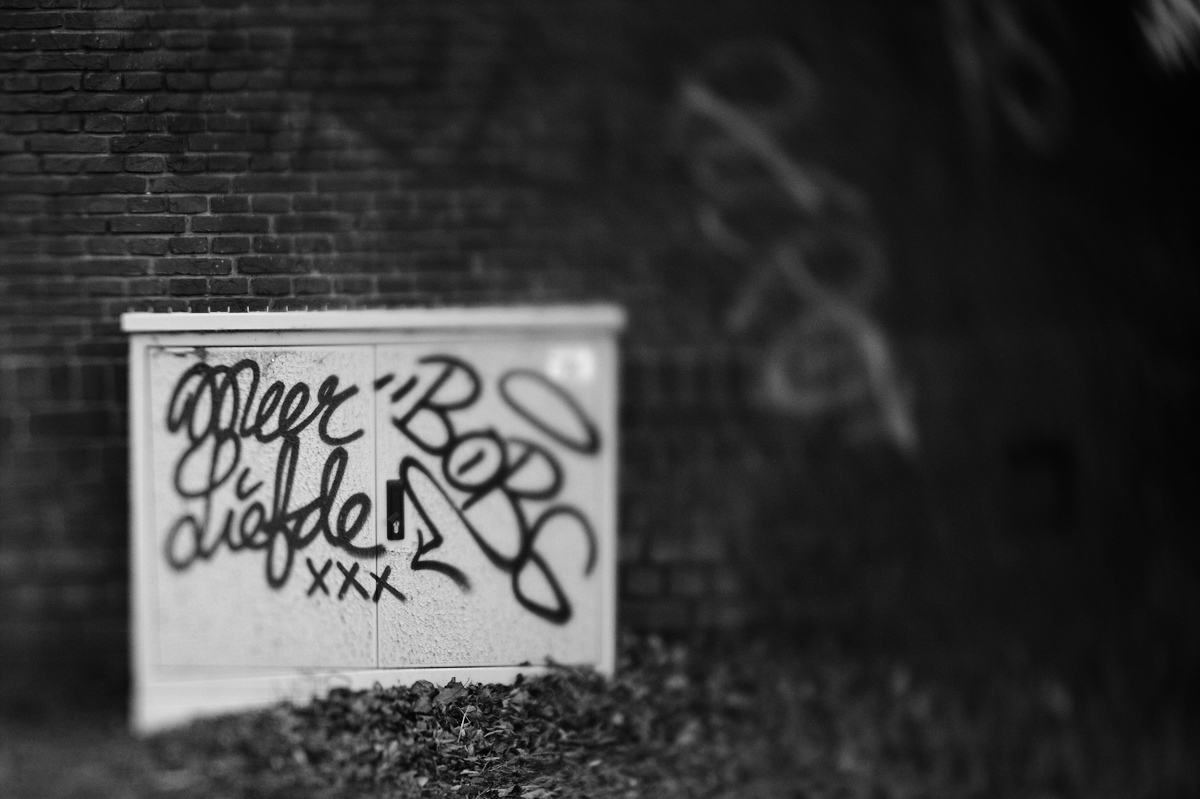 Meer
Liefde
xxx
"BORS